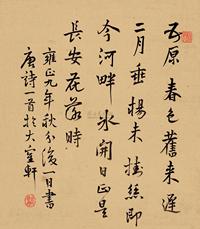 五原春色舊來遲
二月垂楊未掛絲即
今河畔冰開日正是
長安花落時
雍正九年秋分後一日書
唐詩一首於大軒